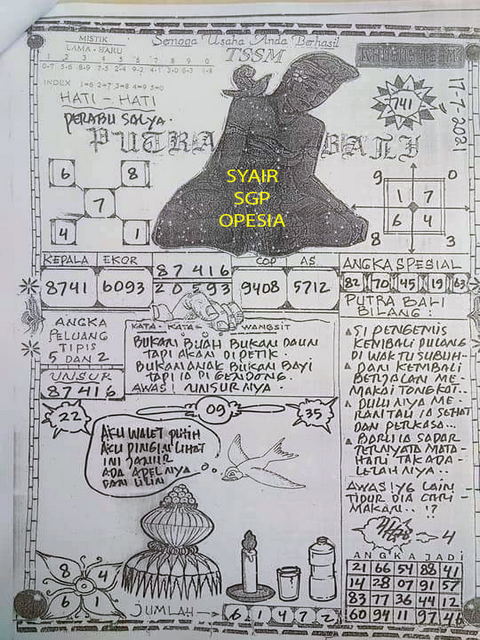 Semoga Usaha Anda Berhasil
MISTIK
LAMA - BARU
TSSM
1 2 3 4 5 6 7 8 9 0
INDEX 1=6 2=7 3=8 4=9 5=0
HATI - HATI
PERABU SALYA.
741
17-7-2021
PUTRA BALI
6 8
7
4 1
SYAIR
SGP
OPESIA
9 0
1 7
6 4
8 3
KEPALA EKOR
8741 6093
87416
20593
COP AS
9408 5712
ANGKA SPESIAL
82 70 45 19 63
PUTRA BALI
BILANG:
ANGKA
PELUANG
TIPIS
5 DAN 2
UNSUR
87416
KATA - KATA WANGSIT
BUKAN BUAH BUKAN DAUN
TAPI AKAN DI PETIK.
BUKAN ANAK BUKAN BAYI
TAPI IA DI GENDONG.
AWAS! UNSURNYA.
SI PENGEMIS
KEMBALI PULANG
DI WAKTU SUBUH
DAN KEMBALI
BERJALAN ME-
MAKAI TONGKAT..
DULUNYA ME-
RANTAU IA SEHAT
DAN PERKASA..
BARU IA SADAR
TERNYATA MATA-
HARI TAK ADA
LELAHNYA..
AWAS! YG LAIN
TIDUR DIA CARI
MAKAN.. !?
4
22 09 35
AKU WALET PUTIH
AKU PINGIN LIHAT
INI JAMUR
ADA APELNYA
DAN LILIN
8 4
6 1
JUMLAH
6 1 4 7 2
ANGKA JADI
21 66 54 88 41
14 28 07 91 57
83 77 36 44 12
60 94 11 97 46